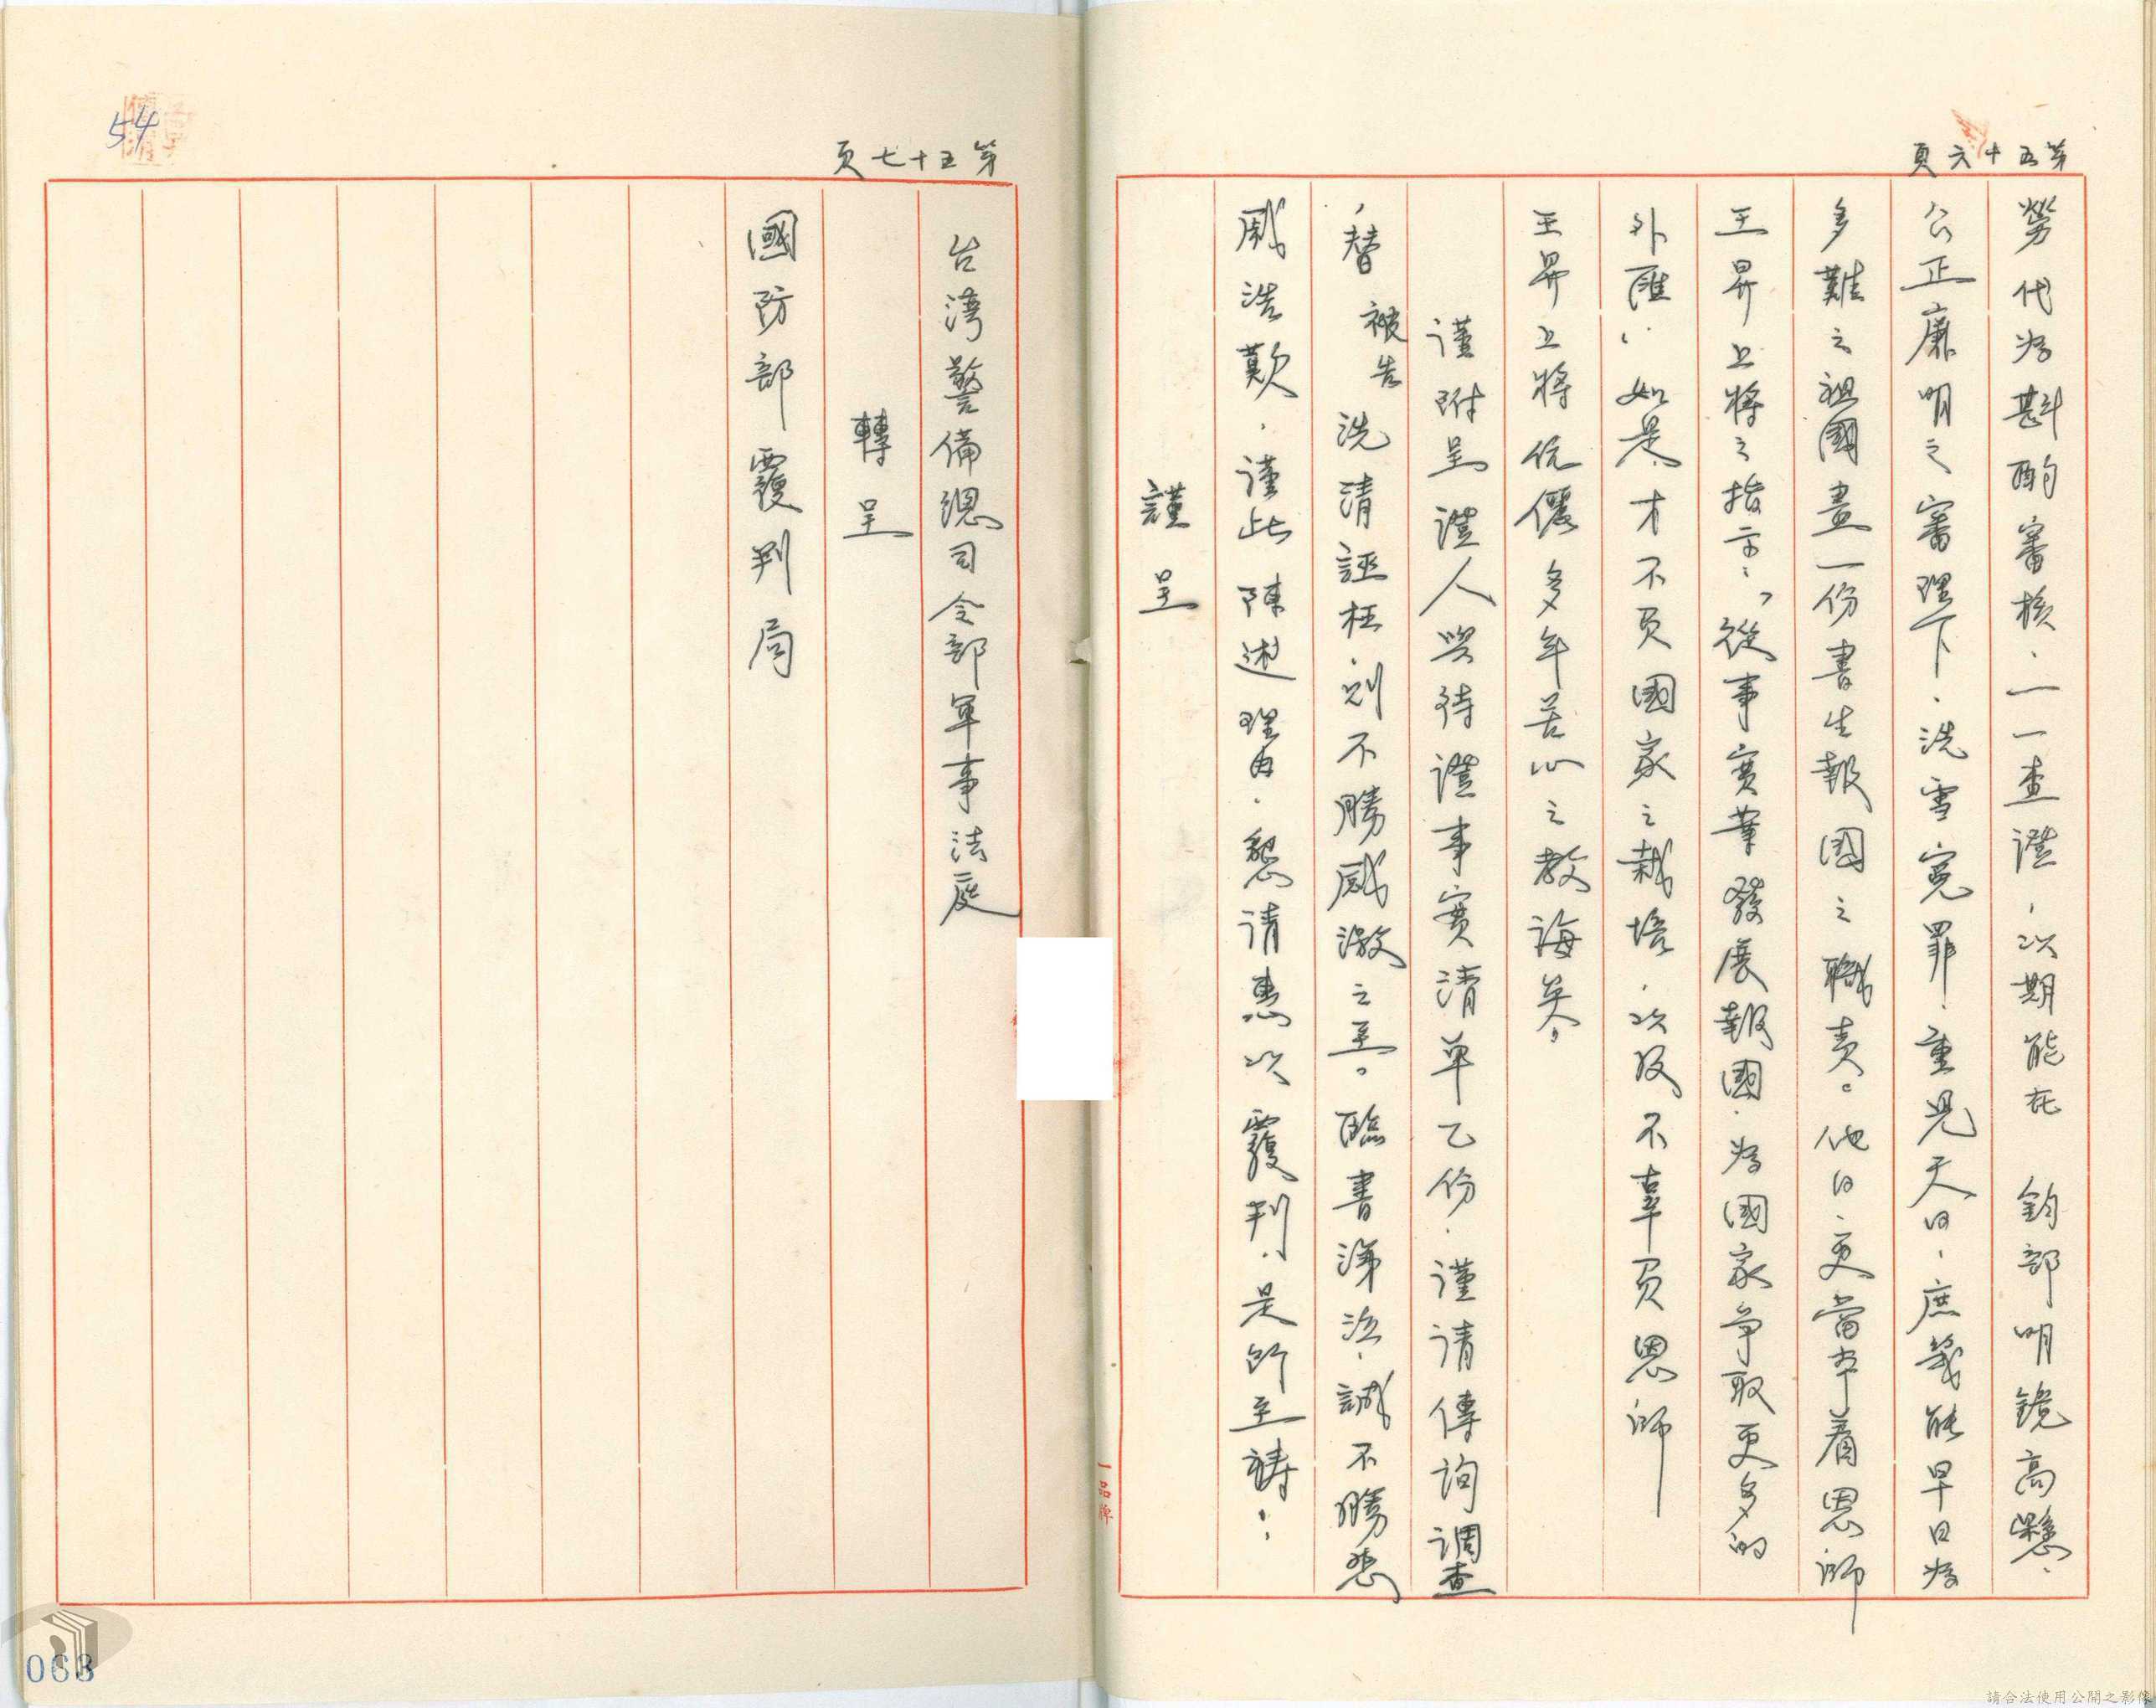 第五十六頁
勞代為斟酌審核、一一查證，以期能在　鈞部明鏡高懸、
公正廉明之審理下、洗雪冤罪、重見天日、庶幾能早日為
多難之祖國盡一份書生報國之職責。他日、更當本着恩師
王昇上將之指示：「從事實業發展報國、為國家爭取更多的
外匯」、如是、才不負國家之栽培、以及不辜負恩師
王昇上將伉儷多年苦心之教誨矣。
謹附呈證人與待證事實清單乙份、謹請傳詢調查
，替被告洗清誣枉、則不勝感激之至。臨書涕泣、誠不勝悲
感浩歎、謹此陳述理由、懇請惠以覆判、是所至禱！
謹呈
一品牌
第五十七頁
台灣警備總司令部軍事法庭
轉呈
國防部覆判局
54
063
請合法使用公開之影像